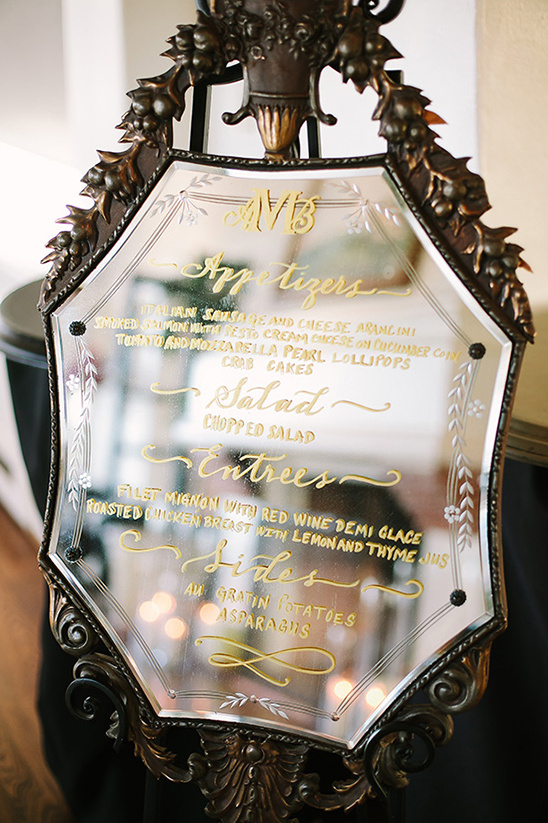 AMB
Appetizers
ITALIAN SAUSAGE AND CHEESE ARANCINI
SMOKED SALMON WITH PESTO CREAM CHEESE ON CUCUMBER COIN
TOMATO AND MOZZARELLA PEARL LOLLIPOPS
CRAB CAKES
Salad
CHOPPED SALAD
Entrees
FILET MIGNON WITH RED WINE DEMI GLACE
ROASTED CHICKEN BREAST WITH LEMON AND THYME JUS
Sides
AU GRATIN POTATOES
ASPARAGUS